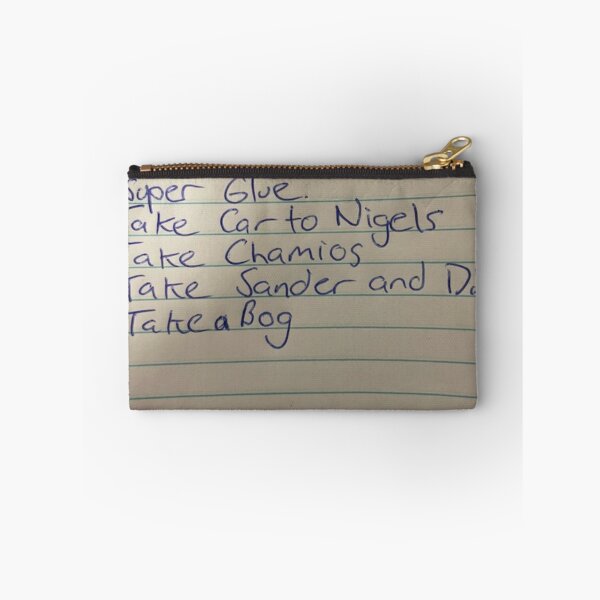 Super Glue.
Take Car to Nigels
Take Chamios
Take Sander and
Take a Bog